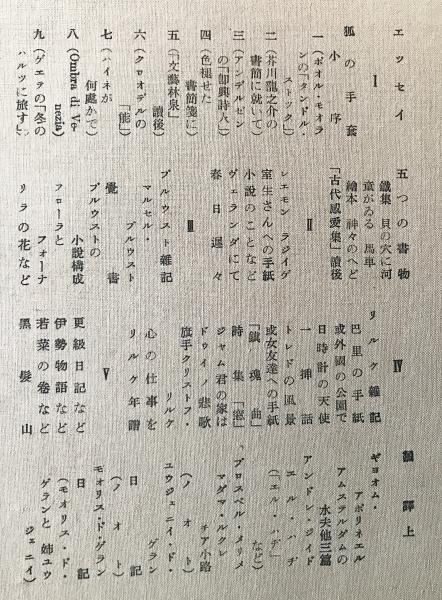 エッセイ
I
狐の手套
小序
一(ポオル・モオラ
ンの「タンドル・
ストック」)
二(芥川龍之介の
書簡に就いて)
三(アンデルゼン
の「卽興詩人」)
四(色褪せた
書簡箋に)
五(「文藝林泉」
讀後)
六(クロオデルの
「能」)
七(ハイネが
何處かで)
八(Ombra di Ve-
nezia)
九(ゲエテの「冬の
ハルツに旅す」)
五つの書物
鐵集 貝の穴に河
童がゐる 馬車
繪本 神々のへど
「古代感愛集」讀後
II
レエモン ラジイゲ
室生さんへの手紙
小説のことなど
ヴェランダにて
春日遲々
III
プルウスト雜記
マルセル・
プルウスト
覺書
プルウストの
小說構成
フローラと
フォーナ
リラの花など
IV
リルケ雜記
巴里の手紙
或外國の公園で
日時計の天使
一插話
トレドの風景
或女友達への手紙
「鎭魂曲」
詩集「窓」
ジャム君の家は
ドゥイノ悲歌
旗手クリストフ・
リルケ
心の仕事を
リルケ年譜
V
更級日記など
伊勢物語など
若菜の卷など
黑髮山
飜譯上
ギヨオム・
アポリネエル
アムステルダムの
水夫他三篇
アンドレ・ジイド
エル・ハヂ
(「エル・ハヂ」
など)
プロスペル・メリメ
マダマ・ルクレ
チア小路
(ノオト)
ユウジェニイ・ド・
ゲラン
日記
(ノオト)
モオリス・ド・ゲラン
日記
(モオリス・ド・
ゲランと姉ユウ
ジェニイ)